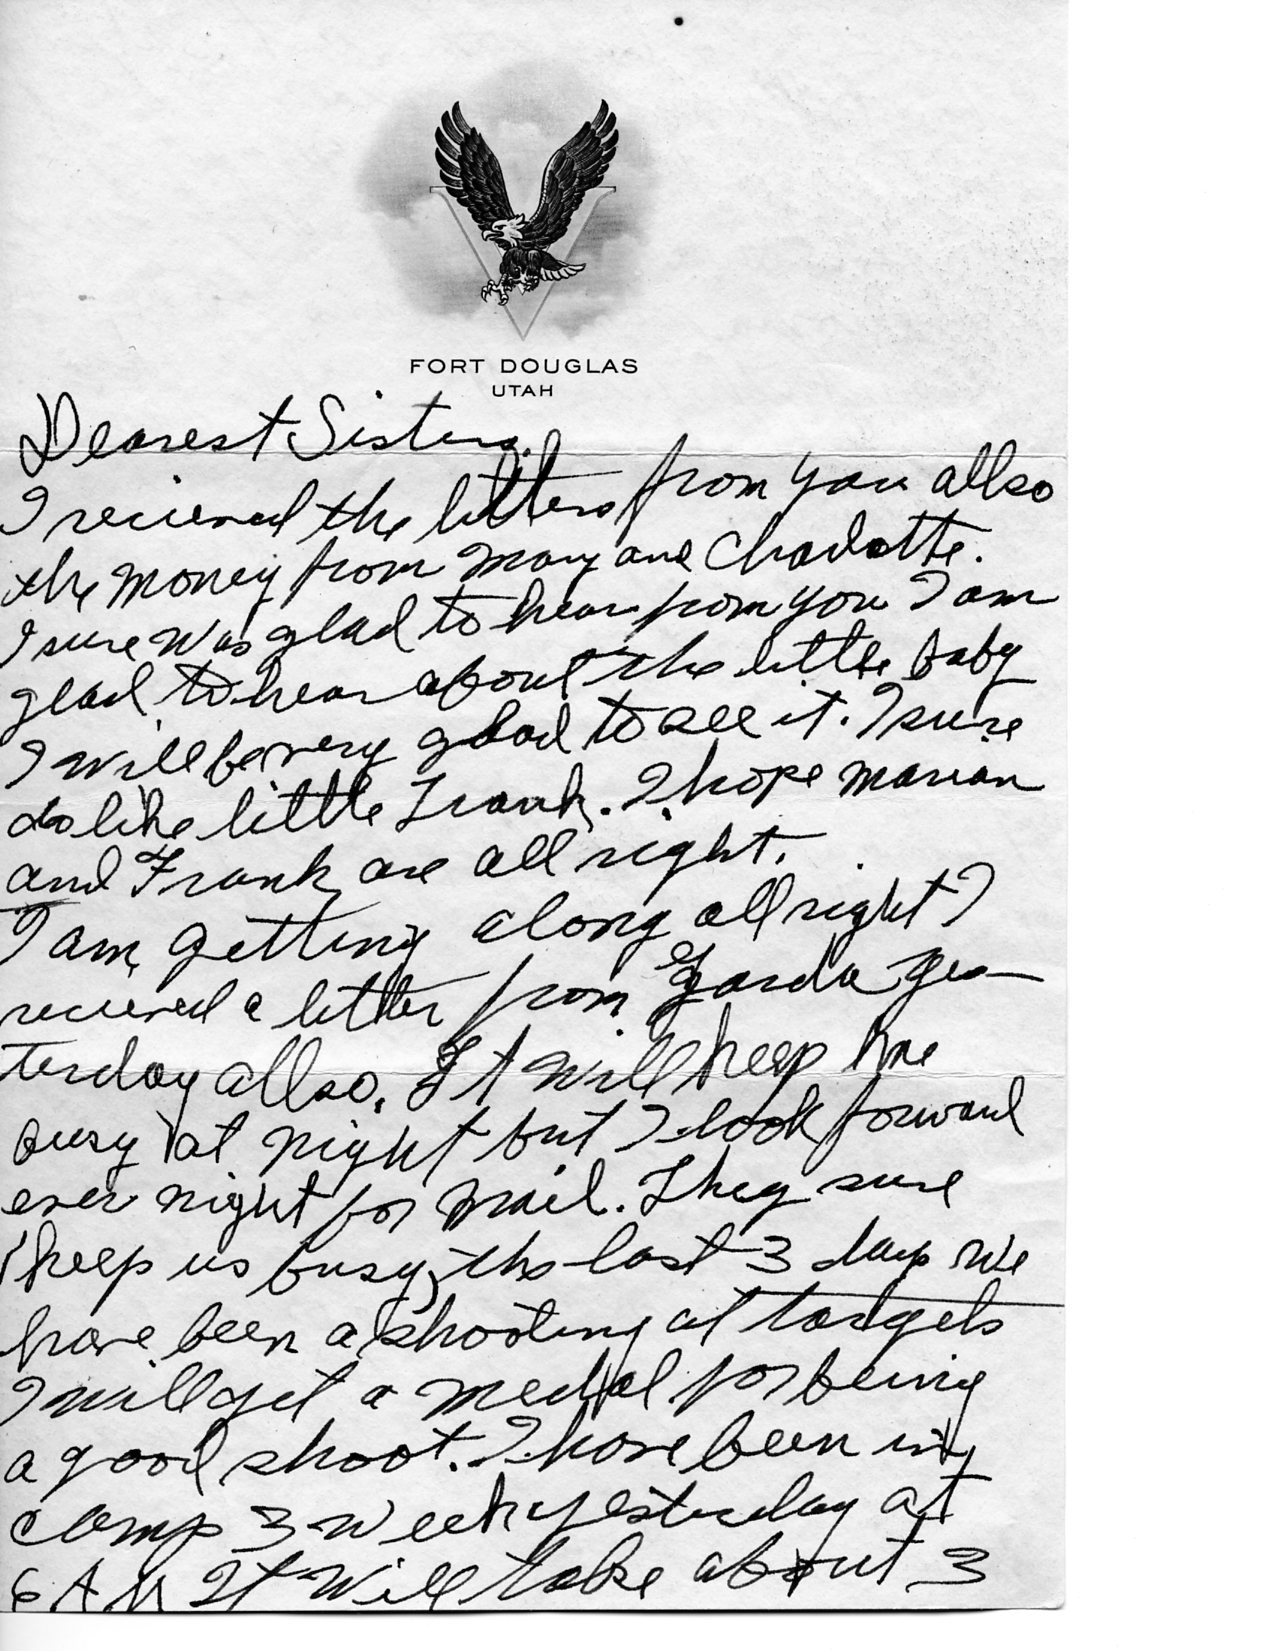 FORT DOUGLAS
UTAH
Dearest Sisters.
I recieved the letters from you allso
the money from Mary and Charlotte.
I sure was glad to hear from you I am
glad to hear about the little baby
I will be very glad to see it. I sure
do like little Frank. I hope Marian
and Frank are all right.
I am getting along all right I
recieved a letter from yes-
terday allso. It will keep me
busy at night but I look forward
ever night for mail. They sure
keep us busy, the last 3 days we
have been a shooting at targets
I will get a medal for being
a good shoot. I have been in
camp 3 week yesterday at
6 AM It will take about 3